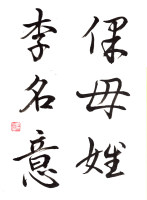 保母姓
李名意